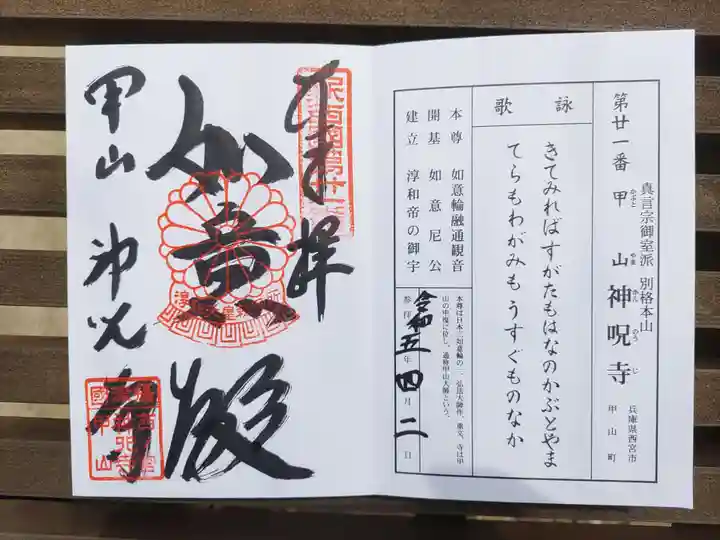 真言宗御室派 別格本山
第廿一番 甲山 神呪寺
かぶと やま かん のう じ
兵庫県西宮市
甲山町
詠歌
きてみればすがたもはなのかぶとやま
てらもわがみもうすぐものなか
本尊 如意輪融通観音
開基 如意尼公
建立 淳和帝の御宇
本尊は日本三如意輪の一、弘法大師作、重文、寺は甲
山の中腹に位し、通称甲山大師という。
参拝 令和五年 四月 二日
奉拝
如意殿
甲山 神呪寺